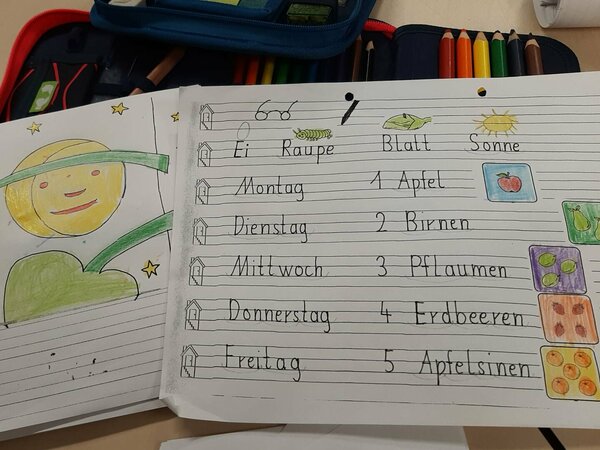 Ei Raupe Blatt Sonne
Montag 1 Apfel
Dienstag 2 Birnen
Mittwoch 3 Pflaumen
Donnerstag 4 Erdbeeren
Freitag 5 Apfelsinen